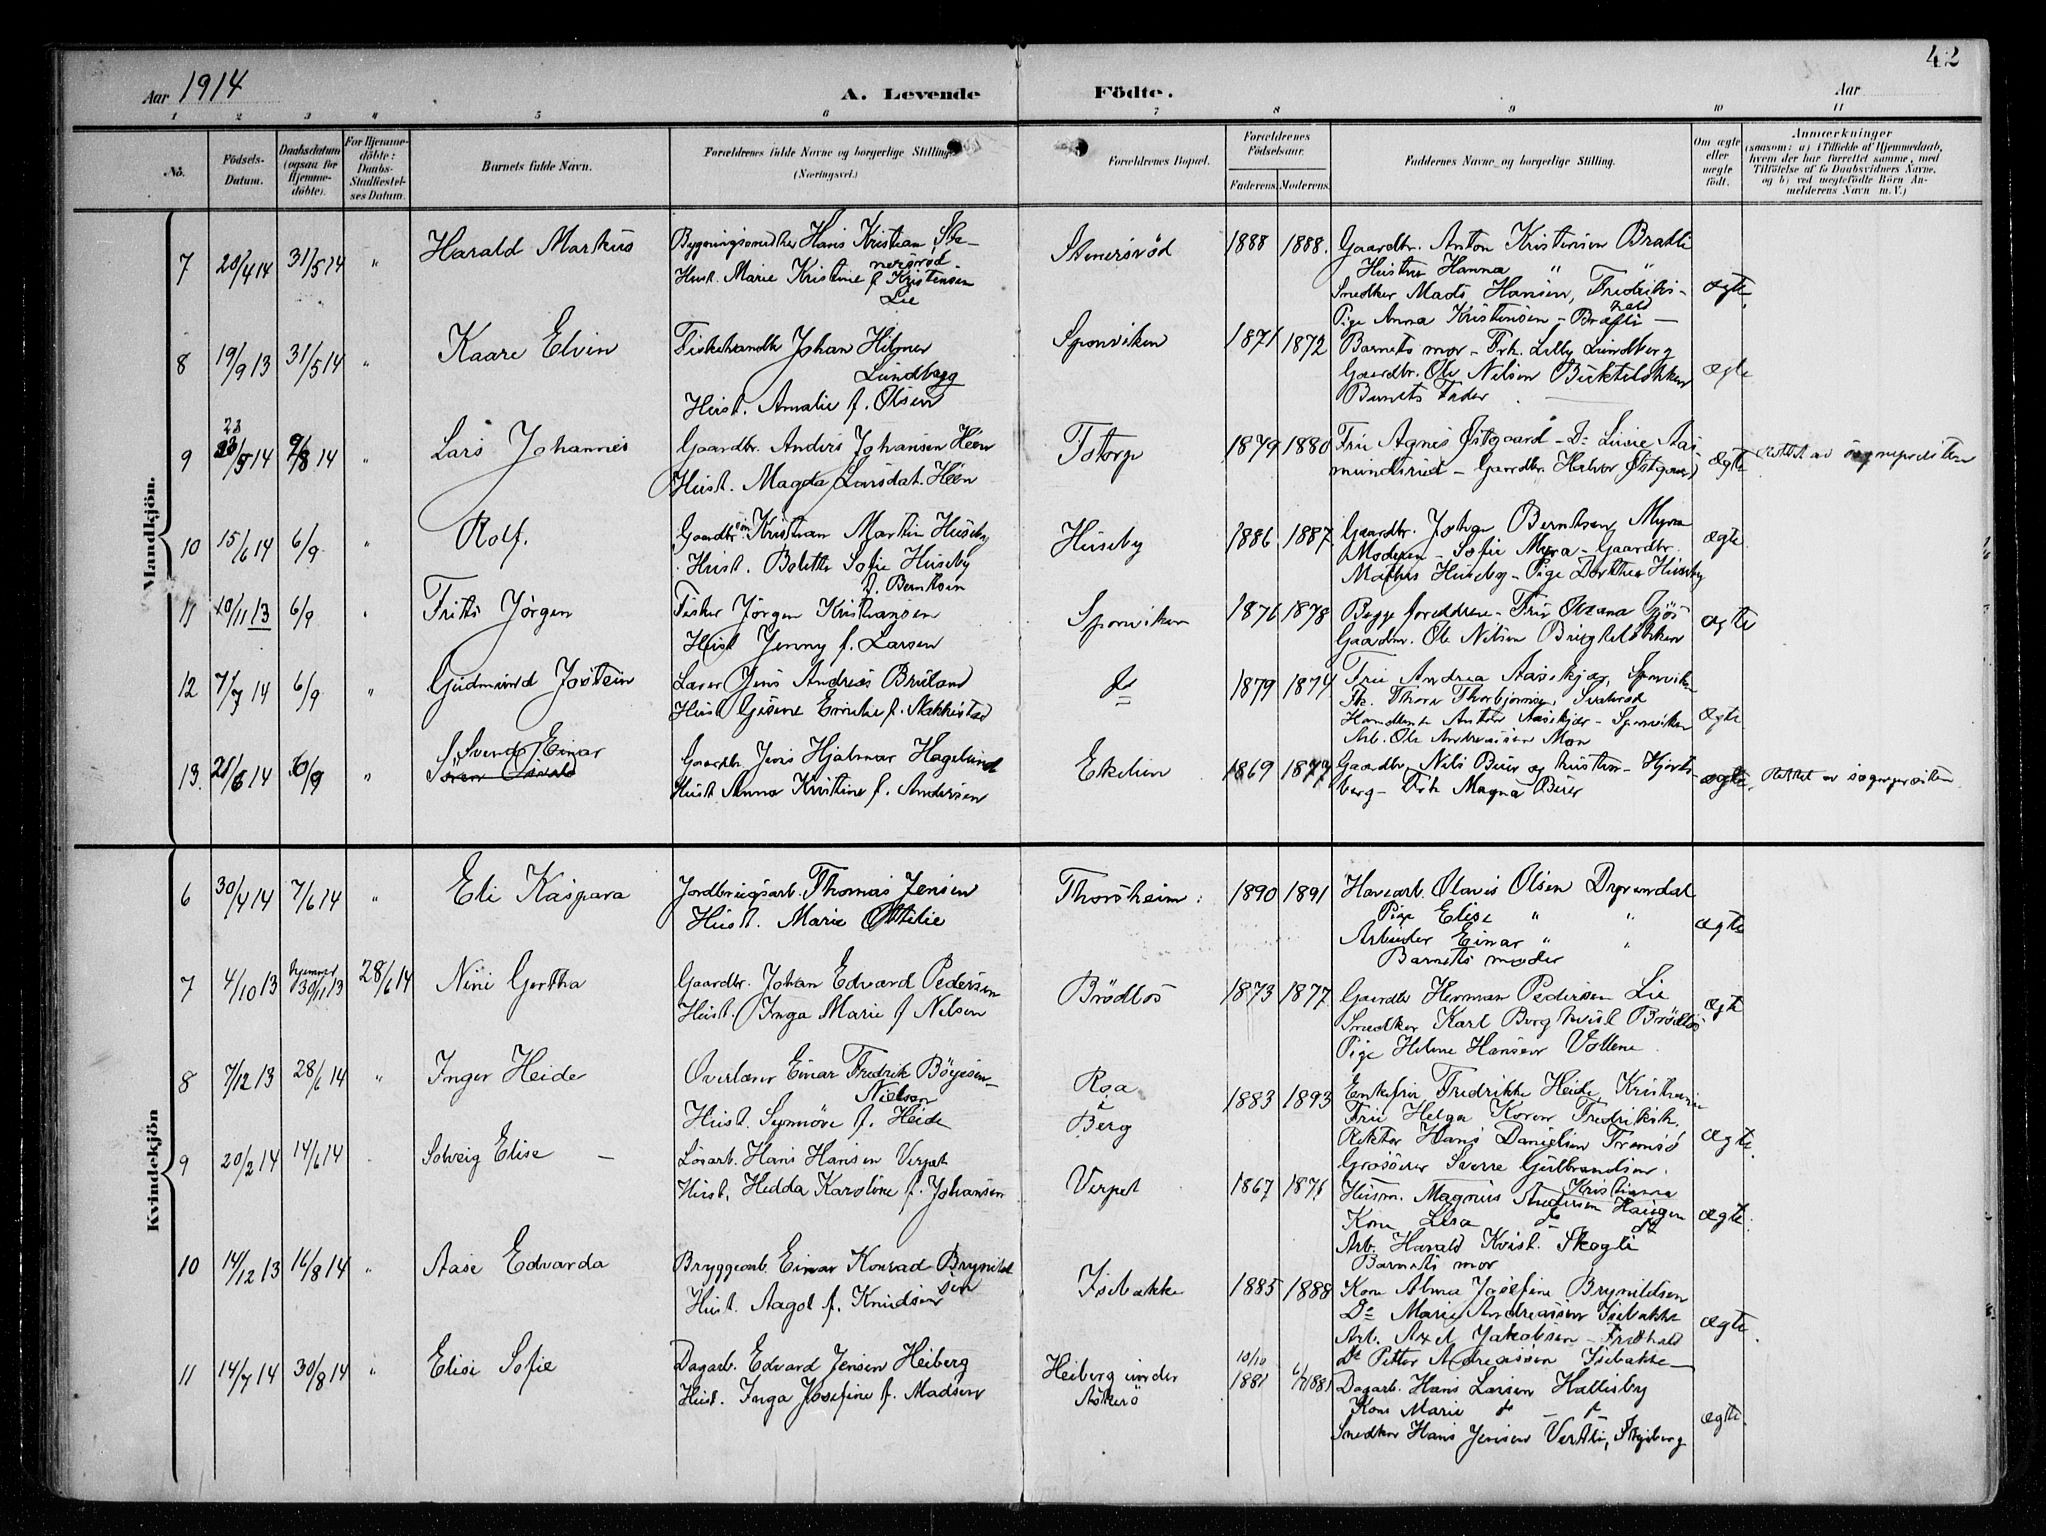 42
Aar 1914
A. Levende Födte.
Aar
1 2 3 4 5 6 7 8 9 10 11
No.
Födsels-Datum.
Daabsdatum (ogsaa for Hjemme-döbte).
For Hjemme-döbte: Daabs-Stadfæstel-ses Datum.
Barnets fulde Navn.
Forældrenes fulde Navne og borgerlige Stilling
(Næringsvei.)
Forældrenes Bopæl.
Forældrenes Födselsaar.
Faderens. Moderens.
Faddernes Navne og borgerlige Stilling.
Om ægte eller uægte födt.
Anmærkninger
(saasom: a) i Tilfælde af Hjemmedaab, hvem der har forrettet samme, med Tilföielse af to Daabsvidners Navne, og b) ved uægtefödte Börn An-melderens Navn m. V.)
Mandkjön.
7 20/4 14 31/5 14 " Harald Markus
Bygningssnedker Hans Kristian Ste-
nersröd
Hust. Marie Kristine f. Kristensen
Lie
Stenersröd 1888 1888.
Gaardbr. Anton Kristensen Bratli
Hustru Hanna "
Snedker Mads Hansen, Fredriks-
hald
Pige Anna Kristensen - Bratli
ægte
8 19/9 13 31/5 14 " Kaare Elvin
Fiskehandler Johan Hilmer
Lundberg
Hust. Amalie f. Olsen
Sponviken 1871 1872
Barnets mor - Frk. Lilly Lundberg
Gaardbr. Ole Nilsen
Barnets Fader
ægte
9 23/5 14 9/8 14 " Lars Johannes
Gaardbr. Anders Johansen Heen
Hust. Magda Larsdat. Heen
Torp 1879 1880
Fru Agnes Østgaard - Do Lucie Aas-
mundsrud - Gaardbr. Halvor Østgaard
ægte
Rettet av sognepresten
10 15/6 14 6/9 " Rolf.
Gaardbr. sön Kristian Martin Huseby
Hust. Bolette Sofie Huseby
f. Berntsen
Huseby 1886 1887
Gaardbr. Johan Berntsen Myra
Moderen - Sofie Myra - Gaardbr.
Mathis Huseby - Pige Dorthea Huseby
ægte
11 10/11 13 6/9 " Frits Jörgen
Fisker Jörgen Kristiansen
Hust Jenny f. Larsen
Sponviken 1876 1878
Begge foreldrene - Fru Oleana Gjös
Gaardbr. Ole Nilsen
ægte
12 7/7 14 6/9 " Gudmund Jostein
Lærer Jens Andreas Bruland
Hust Gesine Emilie f. Nakkestad
do 1879 1874
Fru Andrea Aaseskjær, Sponviken
Frk. Thora Thorbjörnsen, Svaleröd
Handlende Anton Aaseskjær - Sponviken
Arb. Ole Andreassen Mon
ægte
13. 28/6 14 6/9 " Svend Einar
Sören Osvald
Gaardbr. Jens Hjalmar Hagelund
Hust Anna Kristine f. Andersen
Ekelien 1869 1877
Gaardbr Nils Buer og hustru - Hjorts-
berg - Frk Magna Buer
ægte.
Rettet av sognepresten
Kvindekjön
6 30/4 14 7/6 14 " Eli Kaspara
Jordbrugsarb. Thomas Jensen
Hust. Marie Ottilie
Thorsheim 1890 1891
Havearb. Olavs Olsen Dyrendal
Pige Elise " "
Arbeider Einar " "
Barnets moder
ægte
7 4/10 13 hjemme 30/11 13 28/6 14 Nini Gertha
Gaardbr. Johan Edvard Pedersen
Hust. Inga Marie f Nilsen
Brödlös 1873 1877
Gaardbr Herman Pedersen Lie
Snedker Karl Borg kvist Brödlös
Pige Helene Hansen Vollene
ægte
8 7/12 13 28/6 14 " Inger Heide
Overlærer Einar Fredrik Böyesen-
Nielsen
Hust. Synnöve f. Heide
Raa i Berg 1883 1893
Enkefru Fredrikke Heide, Kristiania
Fru Helga Koren Fredriksh.
Rektor Hans Danielsen Tromsö
Grosserer Sverre Gulbrandsen.
Kristiania
ægte.
9 20/2 14 14/6 14 Solveig Elise -
Lösarb. Hans Hansen Verpet
Hust. Hedda Karoline f. Johansen
Verpet 1867 1871
Husm. Magnus Andersen Haugen
Kone Lisa do do
Arb. Harald Kvist. Skogli
Barnets mor
ægte.
10 14/12 13 16/8 14 " Aase Edvarda
Bryggearb. Einar Konrad Brynild
sen
Hust. Aagot f. Knudsen
Isebakke 1885 1888
Kone Alma Josefine Brynildsen
Do Marie Andreassen Isebakke
Arb. Axel Jakobsen - Fredhald
Do Petter Andreassen Isebakke
ægte.
11 14/7 14 30/8 14 " Elise Sofie
Dagarb. Edvard Jensen Heiberg
Hust. Inga Josefine f. Madsen
Heiberg under
Askerö
10/10 1881 6/7 1881
Dagarb. Hans Larsen Hallesby
Kone Marie do - do
Snedker Hans Jensen Vestli, Skjeberg
ægte.